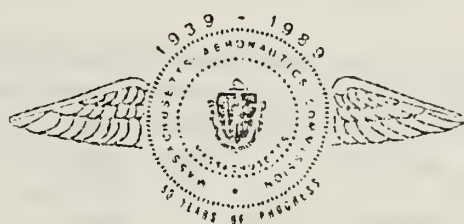 1939 - 1989
MASSACHUSETTS AERONAUTICS COMMISSION
50 YEARS OF PROGRESS